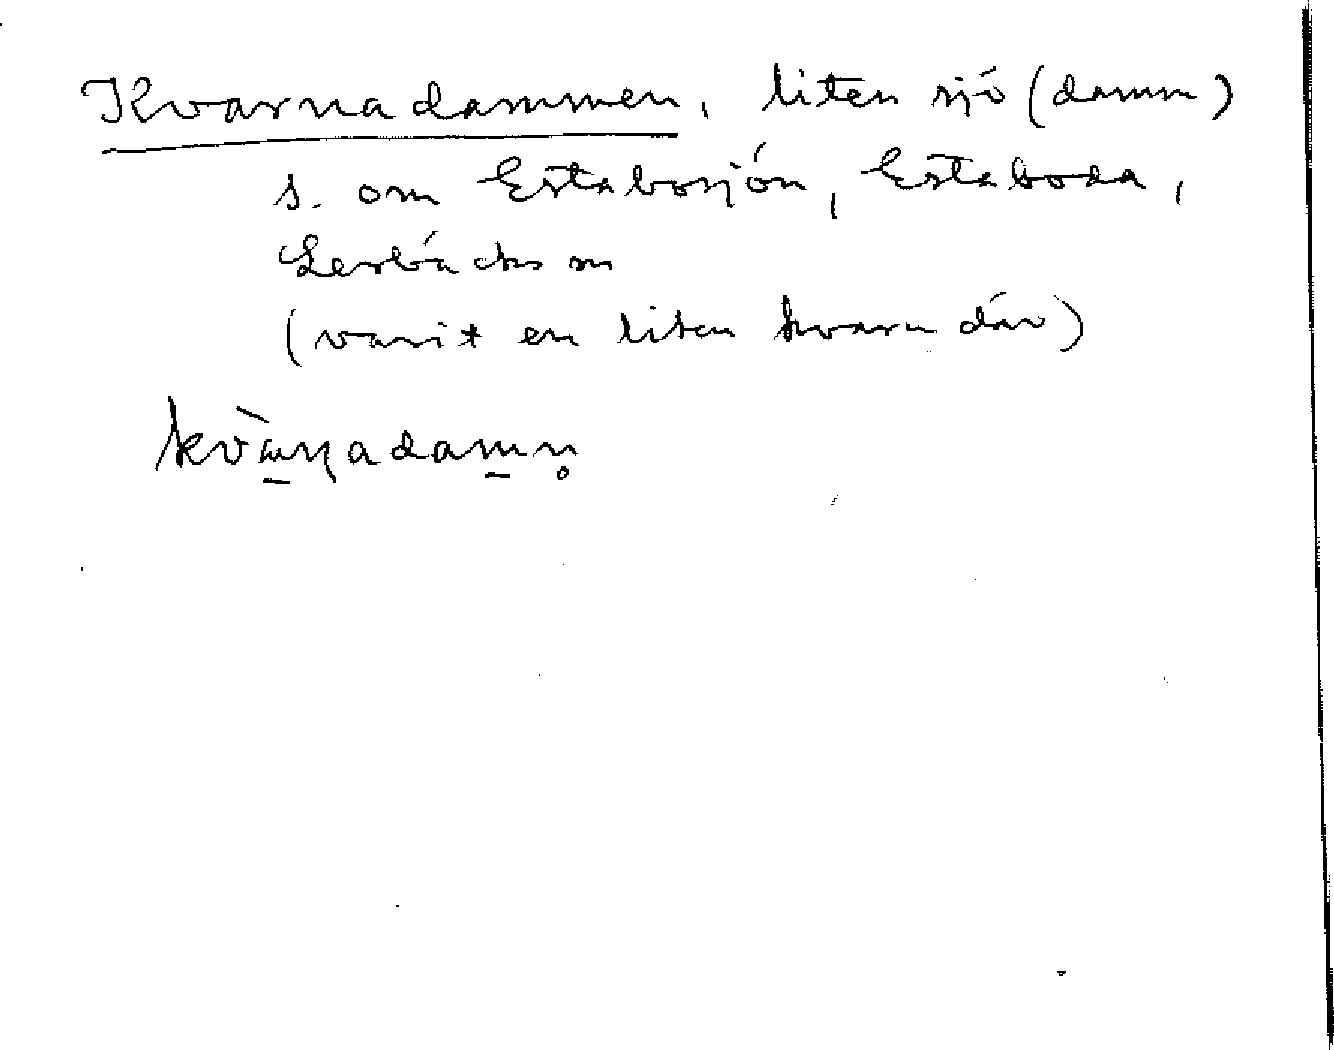 Kvarnadammen, liten sjö (damm)
s. om Estabosjön, Estaboda,
Lerbäcks sn
(varit en liten kvarn där)